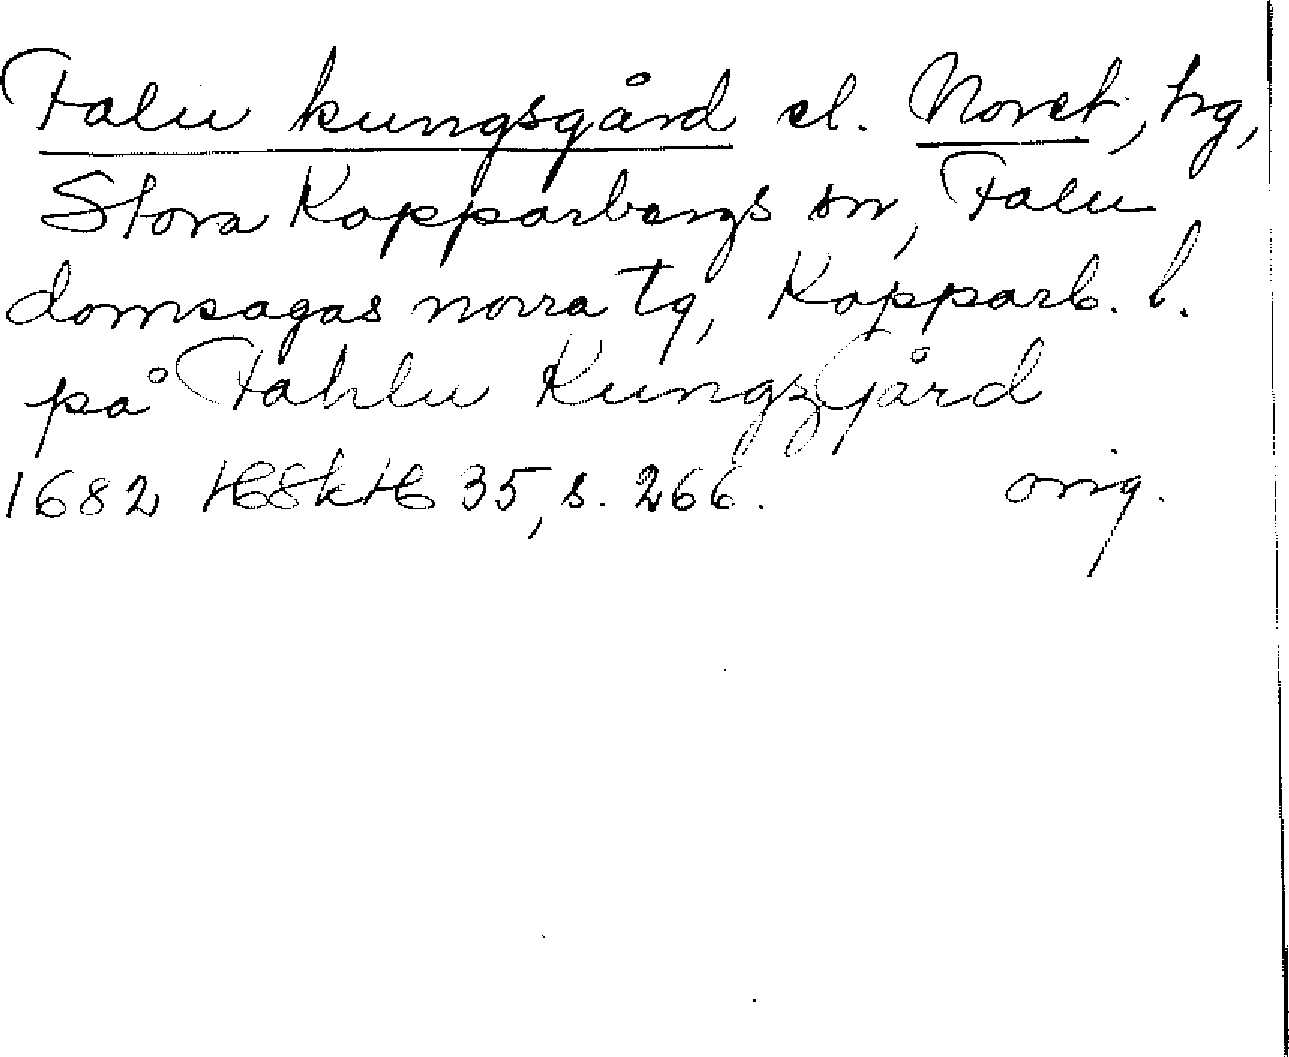 Falu kungsgård el. Noret, hg,
Stora Kopparbergs sn, Falu
domsagas norra tg, Kopparb. l.
på Fahlu KungzGård
1682 HSkH 35, s. 266. orig.